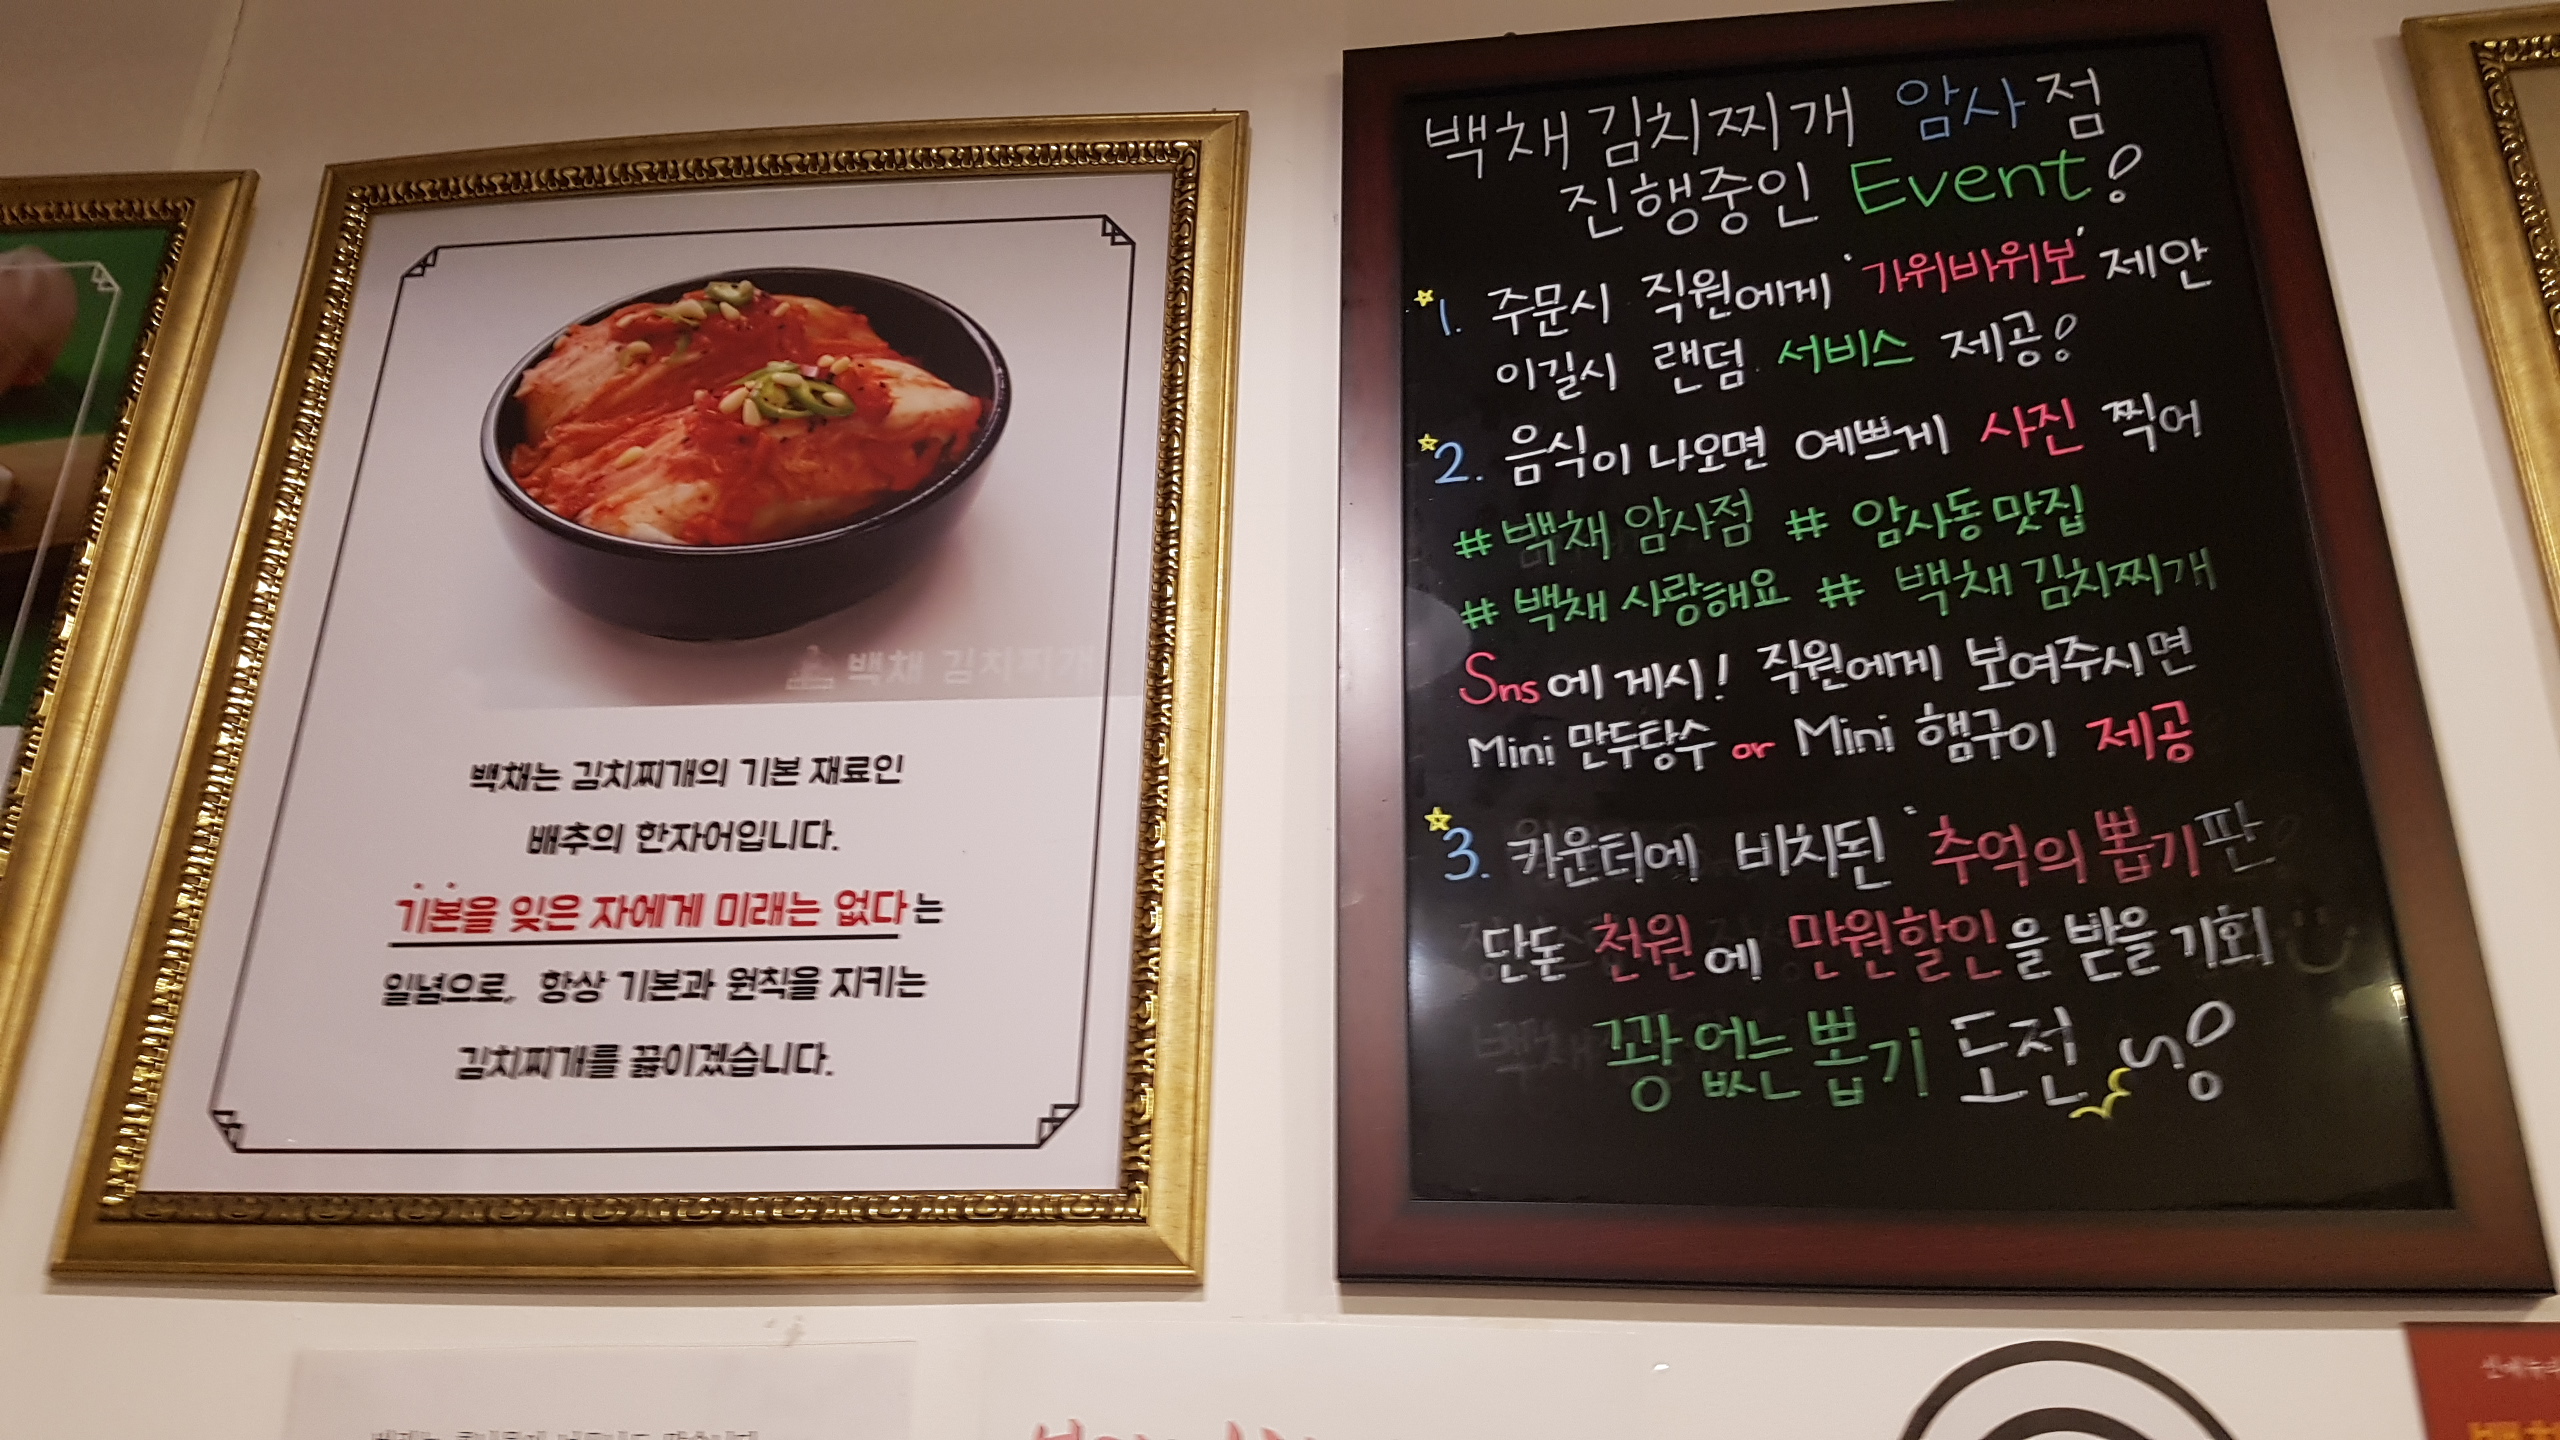 백채 김치찌개
백채는 김치찌개의 기본 재료인
배추의 한자어입니다.
기본을 잊은 자에게 미래는 없다는
일념으로, 항상 기본과 원칙을 지키는
김치찌개를 끓이겠습니다.
백채김치찌개 암사점
진행중인 Event!
1. 주문시 직원에게 '가위바위보' 제안
이길시 랜덤 서비스 제공!
2. 음식이 나오면 예쁘게 사진 찍어
#백채 암사점 # 암사동맛집
#백채 사랑해요 # 백채김치찌개
Sns에 게시! 직원에게 보여주시면
Mini 만두탕수 or Mini 햄구이 제공
3. 카운터에 비치된 '추억의 뽑기판
단돈 천원에 만원할인을 받을 기회
꽝 없는 뽑기 도전